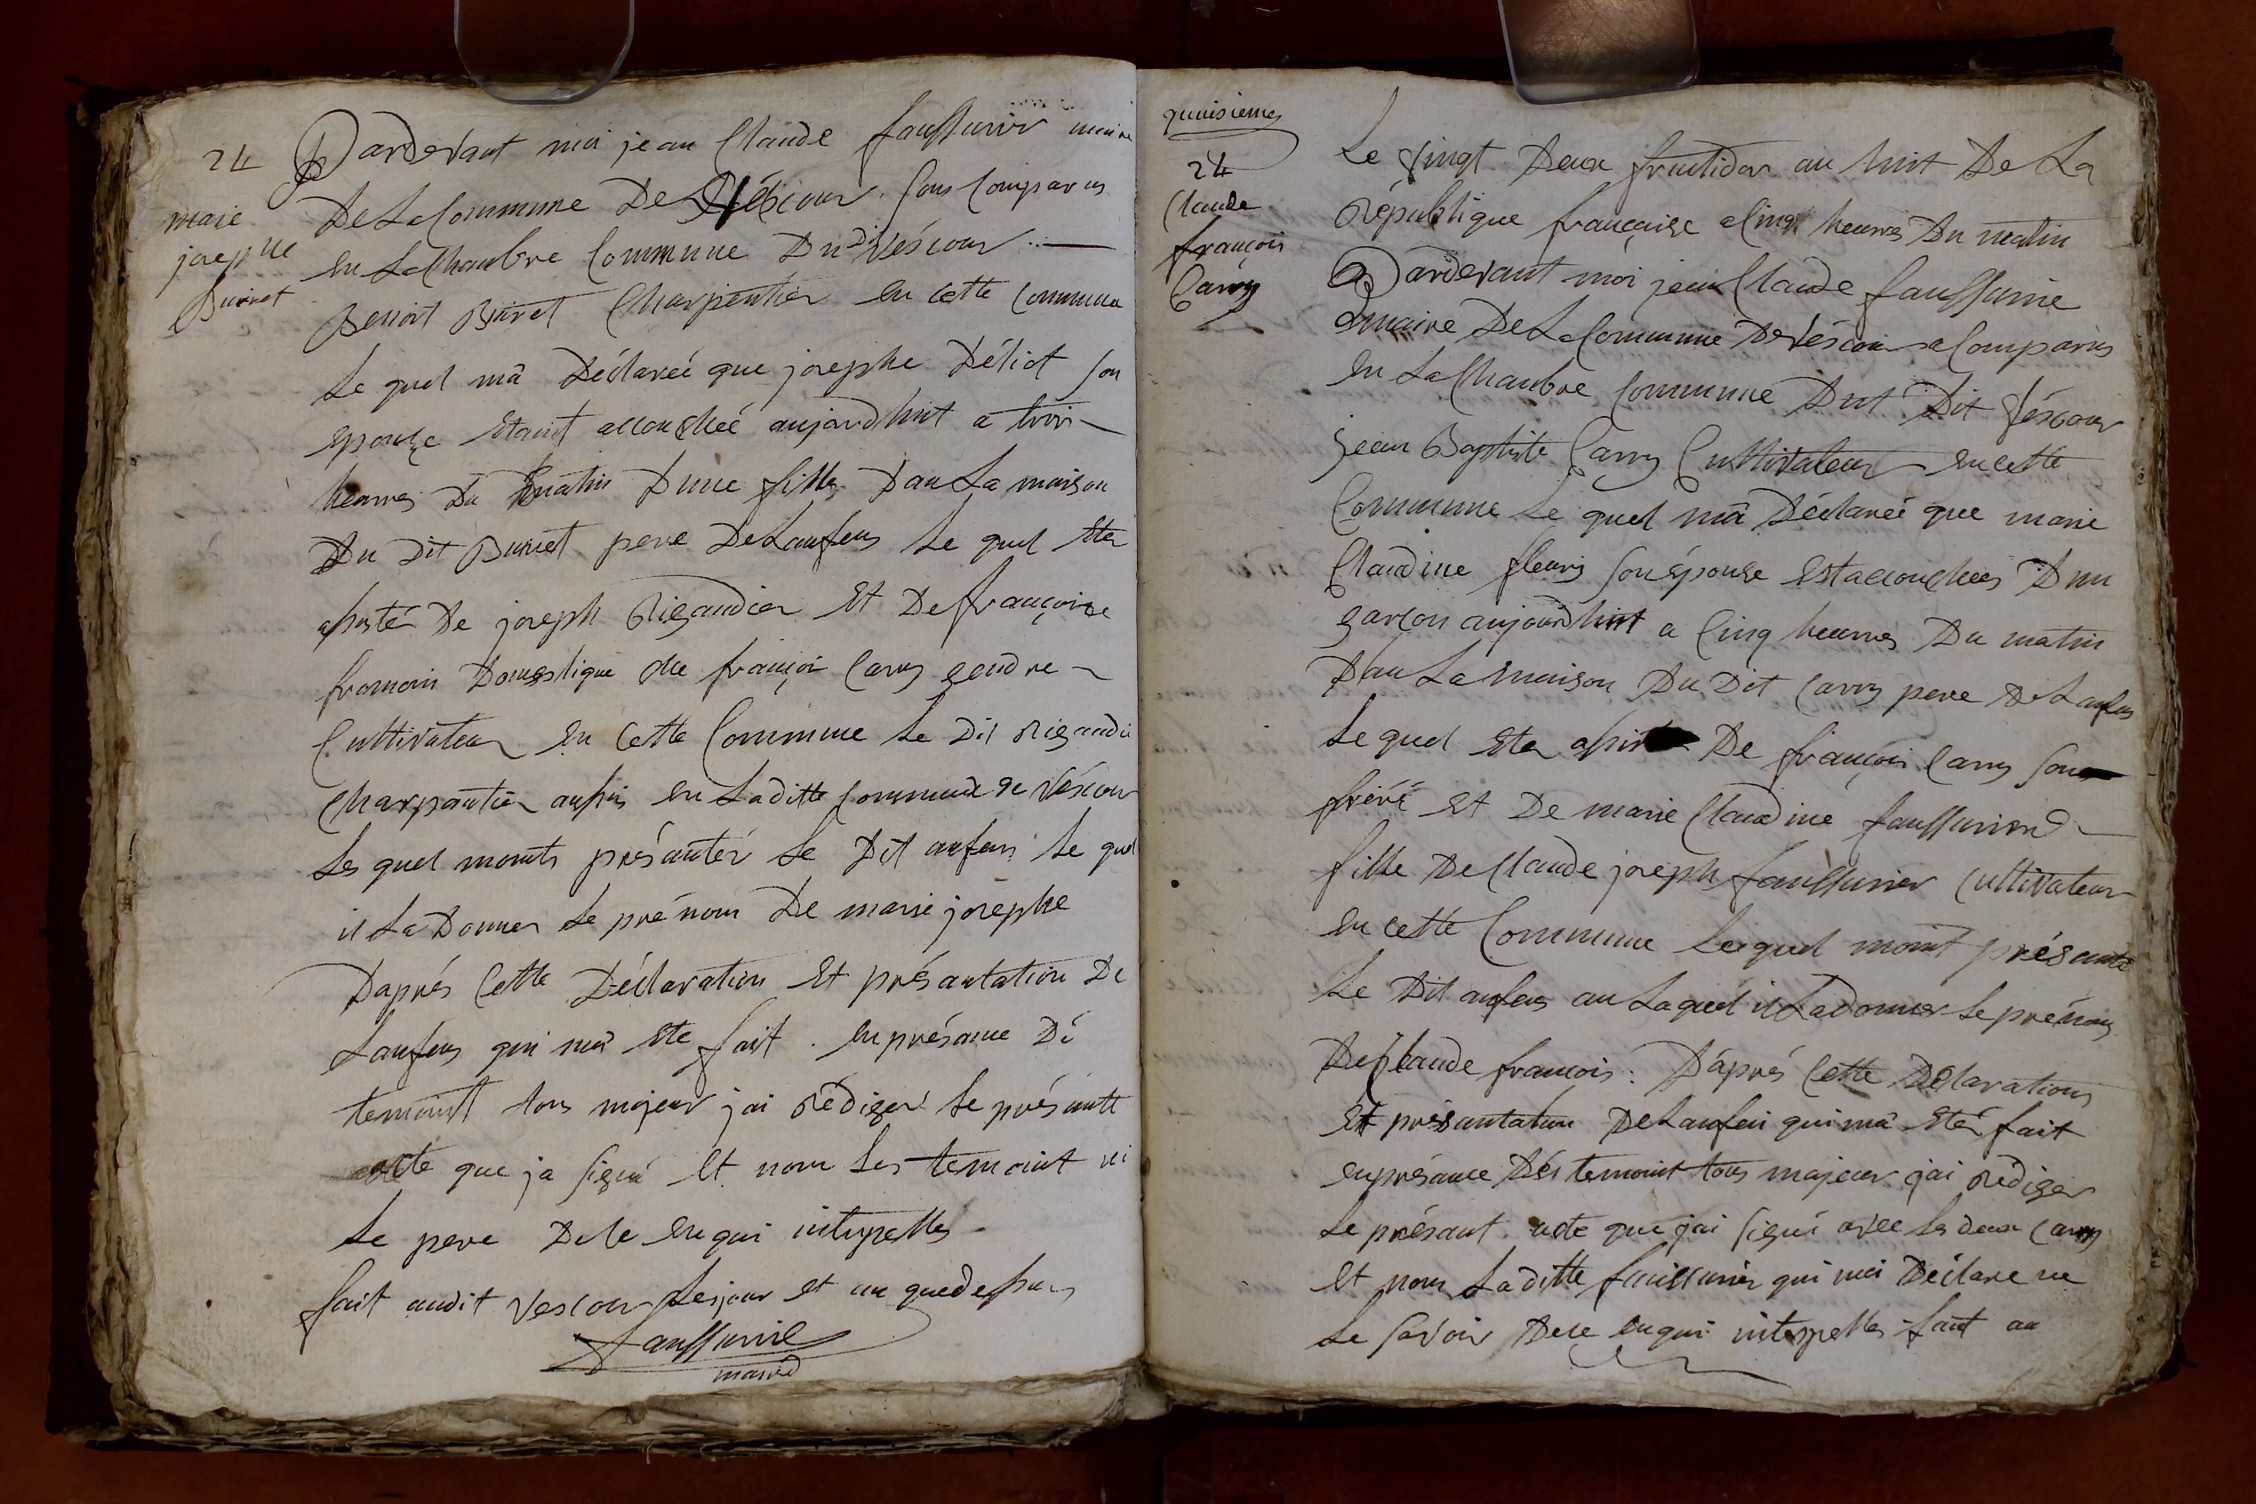 24
marie
josephe
Buiret
Pardevant moi jean Claude faussurier maire
De La Commune De Véscour sous Comparus
en La Chambre Commune Du Dit Véscour
Benoit Buiret Charpentier en cette Commune
Le quel mâ Déclareé que josephe Déliot son
epouse etant accouchéé aujourdhuit a trois
heurres Du matin D'une fille Dan La maison
Du Dit Buiret pere De Lanfens Le quel ete
assisté De joseph Rigaudier et De françoise
fromon Domestique che françoi Carry gendre
Cultivateur en Cette Commune Le Dit Rigaudie
Charpantier aussis en Laditte Commune de Véscour
Les quel monts présantér Le Dit anfens Le quel
il La Donner Le prénom De marie josephe
Daprés Cette Déclaration et présantation De
Lanfens qui mâ ete fait . en présance Dé
temoint tous majeur jai rédiger Le présantte
acte que ja signé et nom Les temoint ni
Le pere De le enqui interpelles
fait audit vescour Lesjour et an quedessus
faussurie
maire
24
Claude
françois
Carry
Le vingt Deux frutidor an huit De La
République française a Cinq heurres Du matin
Pardevant moi jean Claude faussurie
maire De La Commune De Véscour a Comparus
en La Chambre Commune Dut Dit Véscour
jean Baptiste Carry Cultivateur en cette
Commune Le quel mâ Déclareé que marie
Claudine fleury son épouse est accouchéés D'un
garçon aujourdhuit a Cinq heurres Du matin
Dan La maison Du Dit Carry pere De Lanfens
Le quel ete De françois Carry son
fréré et De marie Claudine faussurier
fille De Claude joseph faussurier Cultivateur
en cette Commune Lesquel mont présanté
Le Dit anfens au Laquel il La donner Le prénom
De Claude françois : D'áprés Cette Déclaration
et présantation De Lanfen qui mâ eté fait
en présance Dés temoint tous majeur jai rédiger
Le présant acte que jai signé avec Les deux Carry
et nom Laditte faussurier qui mi Déclare ne
Le savoir De ce enqui interpelles fait au